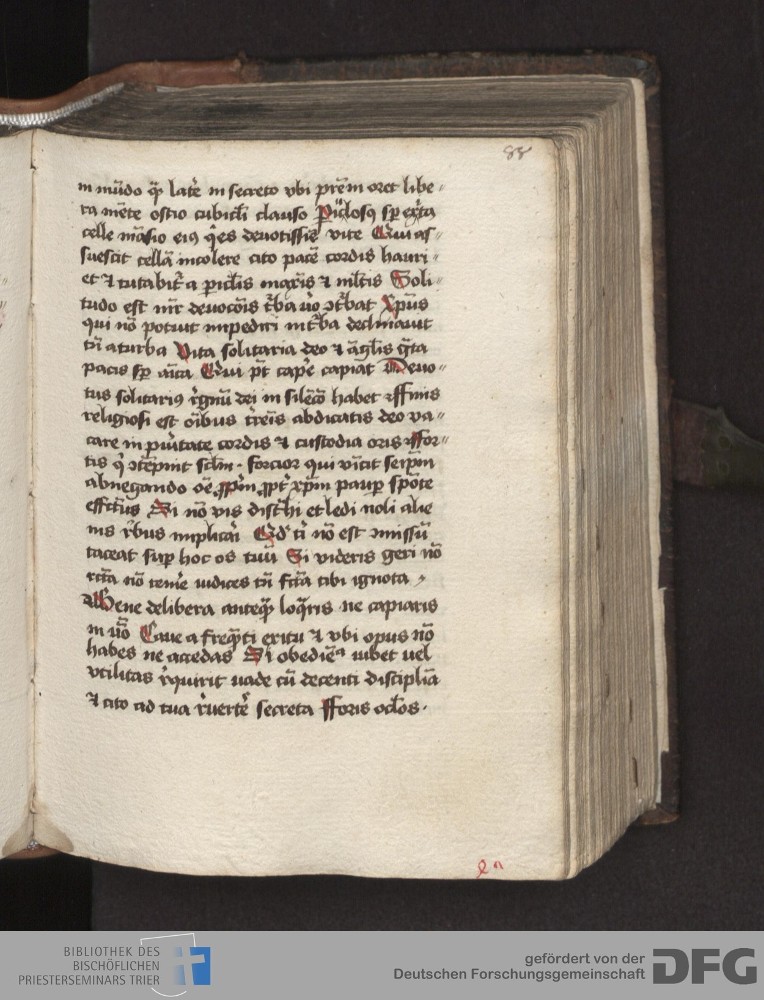 88
in mūdo q̄ latē in secreto vbi prēm oret libe〃
ra mēte ostio cubicl̄i clauso Pic̄losꝯ sp̄ exͣta
celle māsio eiꝯ q̄es deuotissīe vite Qui as〃
suescit cellā incolere cito pacē cordis hauri〃
et ⁊ tutabit̄ a picl̄is magͣis ⁊ ml̄tis Soli〃
tudo est mr̄ deuocōis t̄ba v̊o ↄt̄bat Xp̄us
qui nō potuit impediri in t̄ba declinauit
tn̄ a turba Vita solitaria deo ⁊ āgl̄is gͣta
pacis sp̄ aīca Qui pt̄ capē capiat Deuo〃
tus solitariꝯ r̄gnū dei in silēcō habet ⁊ffinis
religiosi est oībus t̄reīs abdicatis deo va〃
care in puritate cordis ⁊ custodia oris ffor〃
tis q̄ ↄtēpnit scl̄m · forcior qui vīcit serpn̄
abnegando oē ꝓpͥm ꝓpt̄ xp̄m paup̄ spōte
effc̄tus Si nō vis dist̄hi et ledi noli alie
nis r̄bus implicāi Qd' tⁱ nō est ↄmissū
taceat sup hoc os tuū Si videris geri nō
rc̄ta nō temē iudices tn̄ fc̄ta tibi ignota
Bene delibera anteq̄ꝫ loq̄ris ne capiaris
in v̊o Caue a freqn̄ti exitu ⁊ vbi opus nō
habes ne accedas Si obediēͣ iubet uel
vtilitas r̄quirit uade cū decenti disciplīa
⁊ cito ad tua r̄uertē secreta fforis ocl̄os ·
BIBLIOTHEK DES
BISCHÖFLICHEN
PRIESTERSEMINARS TRIER
gefördert von der
Deutschen Forschungsgemeinschaft
DFG